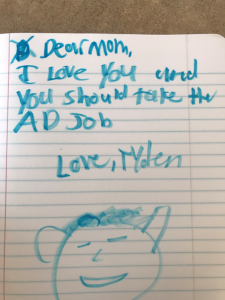 Dear Mom,
I Love you and
you should take the
AD Job
Love,